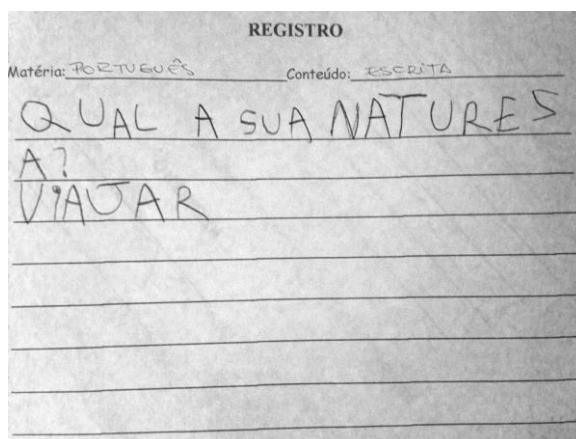 REGISTRO
Matéria: PORTUGUÊS Conteúdo: ESCRITA
QUAL A SUA NATURES
A?
VIAJAR